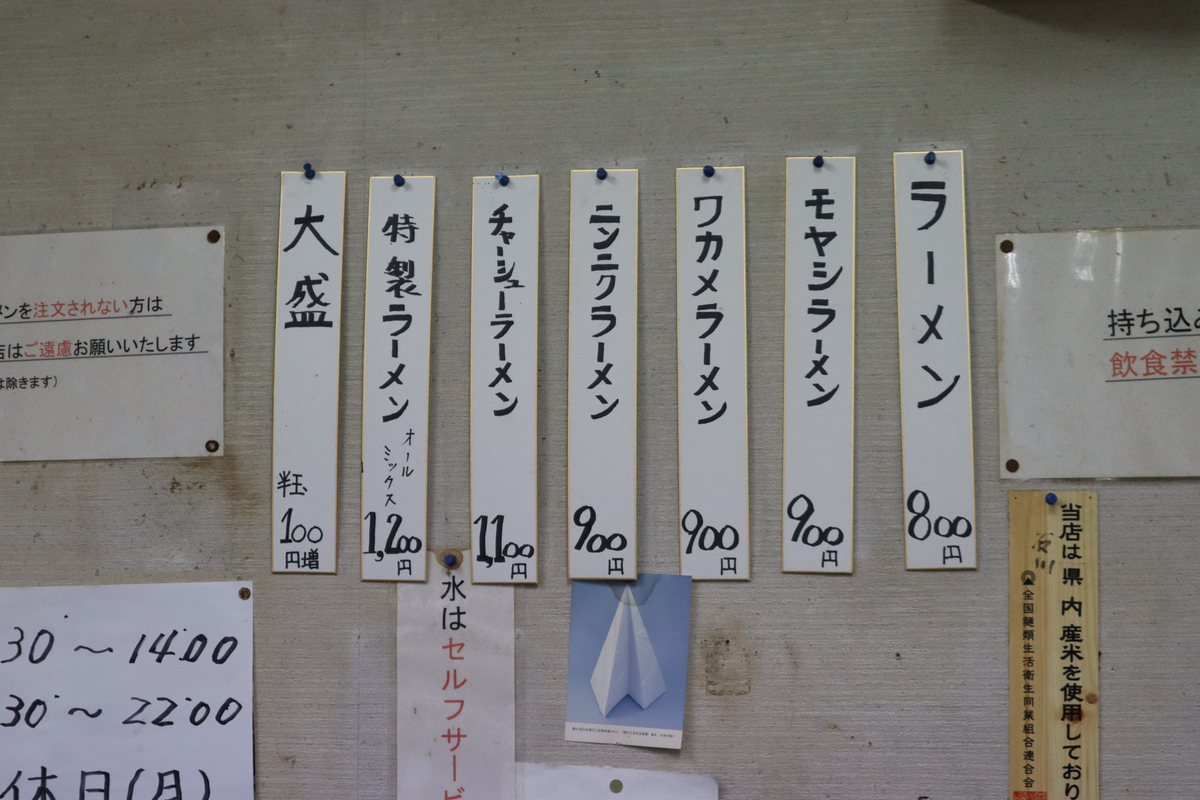 ラーメン
800円
モヤシラーメン
900円
ワカメラーメン
900円
ニンニクラーメン
900円
チャーシューラーメン
1,100円
特製ラーメン
オールミックス
1,200円
大盛
半玉
100円増
持ち込み
飲食禁
当店は県内産米を使用しており
全国麺類生活衛生同業組合連合会
メンを注文されない方は
店はご遠慮お願いいたします
は除きます)
水はセルフサービ
30~14:00
30~22:00
休日(月)